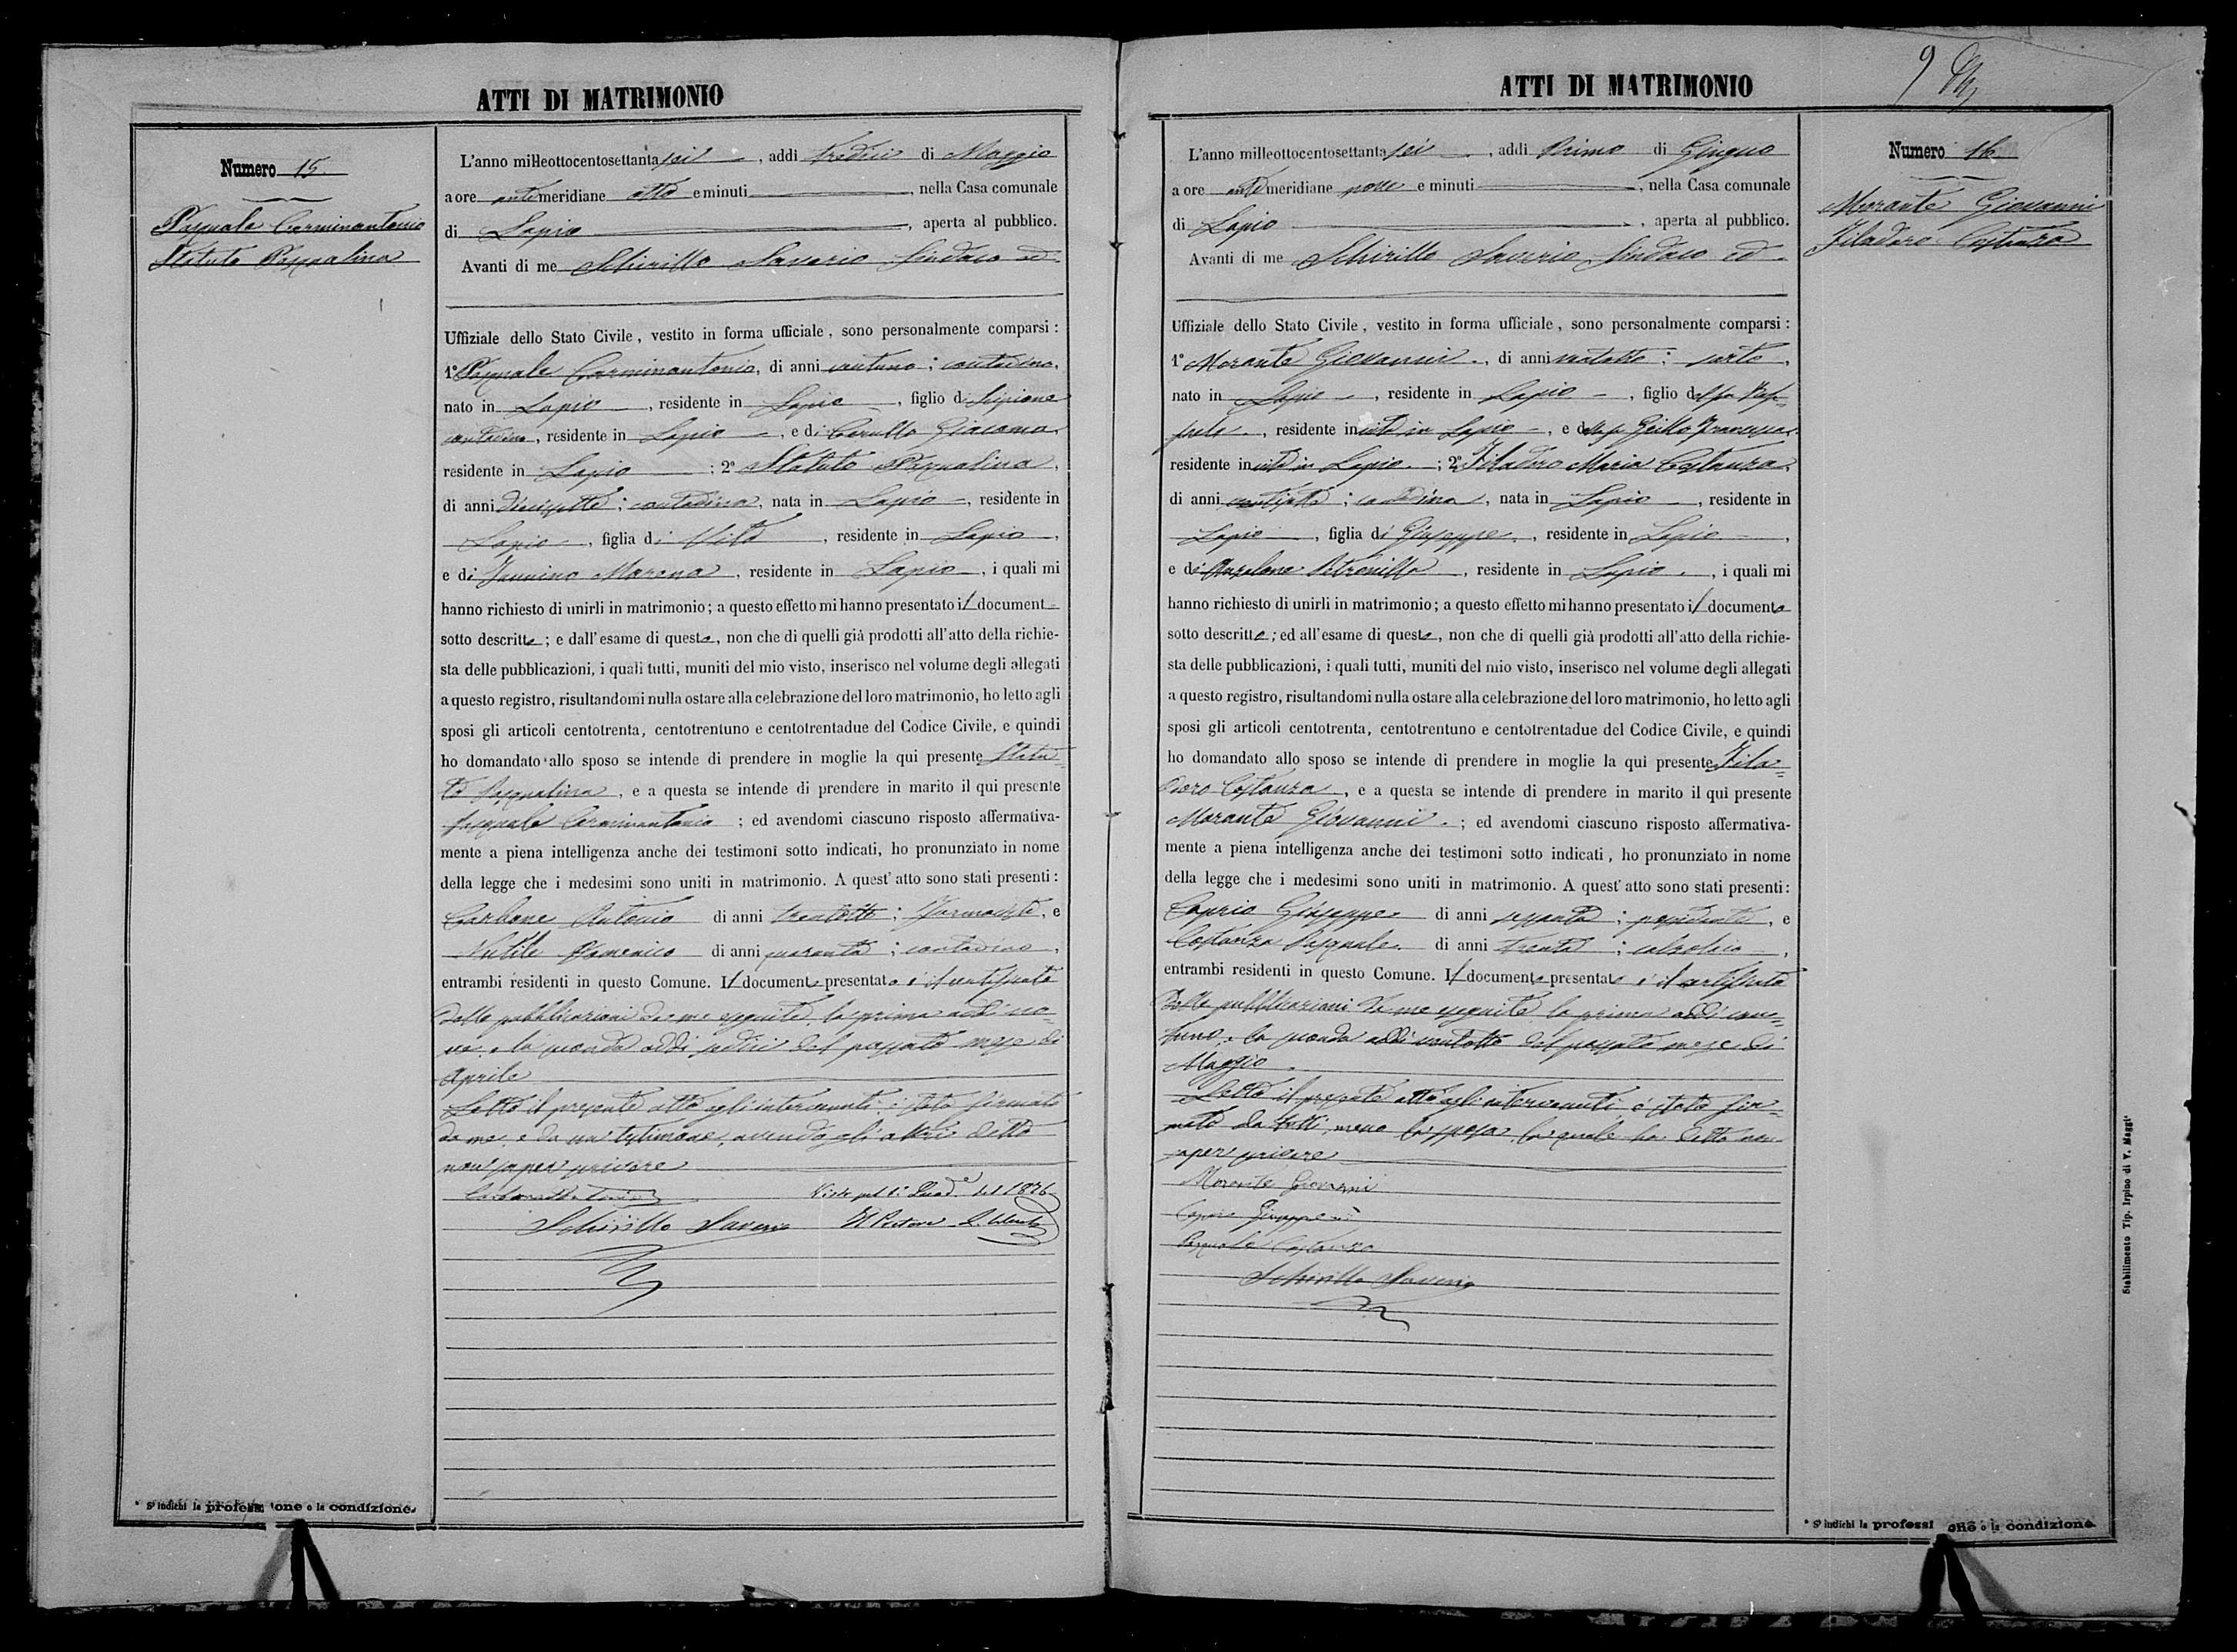 ATTI DI MATRIMONIO
Numero 15.
Pasquale Carminantonio
Statuto Pasqualina
L'anno milleottocentosettantasei, addi tredici di Maggio
a ore antimeridiane otto e minuti, nella Casa comunale
di Lapio, aperta al pubblico.
Avanti di me Schirillo Saverio Sindaco ed
Uffiziale dello Stato Civile, vestito in forma ufficiale, sono personalmente comparsi:
1° Pasquale Carminantonio, di anni ventuno; contadino,
nato in Lapio, residente in Lapio, figlio di Scipione
contadino, residente in Lapio, e di Carullo Giacoma,
residente in Lapio; 2° Statuto Pasqualina,
di anni diciassette; contadina, nata in Lapio, residente in
Lapio, figlia di Vito, residente in Lapio,
e di Jannino Marena, residente in Lapio, i quali mi
hanno richiesto di unirli in matrimonio; a questo effetto mi hanno presentato il document
sotto descritto; e dall'esame di questo, non che di quelli già prodotti all'atto della richie-
sta delle pubblicazioni, i quali tutti, muniti del mio visto, inserisco nel volume degli allegati
a questo registro, risultandomi nulla ostare alla celebrazione del loro matrimonio, ho letto agli
sposi gli articoli centotrenta, centotrentuno e centotrentadue del Codice Civile, e quindi
ho domandato allo sposo se intende di prendere in moglie la qui presente Statu=
to Pasqualina, e a questa se intende di prendere in marito il qui presente
Pasquale Carminantonio; ed avendomi ciascuno risposto affermativa-
mente a piena intelligenza anche dei testimoni sotto indicati, ho pronunziato in nome
della legge che i medesimi sono uniti in matrimonio. A quest'atto sono stati presenti:
Carbone Antonio di anni trentotto; Farmacista, e
Nutile Domenico di anni quaranta; contadino,
entrambi residenti in questo Comune. Il documento presentato è il certificato
delle pubblicazioni da me eseguite, la prima addì no=
ve, e la seconda addì sedici del passato mese di
Aprile
Letto il presente atto agli intervenuti è stato firmato
da me, e da un testimone, avendo gli altri detto
non saper scrivere
Visto pel 1° Quad.e del 1876
Schirillo Saverio Il Pretore
* S'indichi la professione o la condizione.
ATTI DI MATRIMONIO
9
Numero 16
Morante Giovanni
Filadoro Costanza
L'anno milleottocentosettantasei, addi Primo di Giugno
a ore antimeridiane nove e minuti, nella Casa comunale
di Lapio, aperta al pubblico.
Avanti di me Schirillo Saverio Sindaco ed
Uffiziale dello Stato Civile, vestito in forma ufficiale, sono personalmente comparsi:
1° Morante Giovanni, di anni ventotto; sarto,
nato in Lapio, residente in Lapio, figlio del fu
residente in vita in Lapio, e della fu Grillo Francesca
residente in vita in Lapio; 2° Filadoro Maria Costanza,
di anni ventisette; contadina, nata in Lapio, residente in
Lapio, figlia di Giuseppe, residente in Lapio,
e di Anzalone Petronilla, residente in Lapio, i quali mi
hanno richiesto di unirli in matrimonio; a questo effetto mi hanno presentato il documento
sotto descritto; ed all'esame di questo, non che di quelli già prodotti all'atto della richie-
sta delle pubblicazioni, i quali tutti, muniti del mio visto, inserisco nel volume degli allegati
a questo registro, risultandomi nulla ostare alla celebrazione del loro matrimonio, ho letto agli
sposi gli articoli centotrenta, centotrentuno e centotrentadue del Codice Civile, e quindi
ho domandato allo sposo se intende di prendere in moglie la qui presente Fila=
doro Costanza, e a questa se intende di prendere in marito il qui presente
Morante Giovanni; ed avendomi ciascuno risposto affermativa-
mente a piena intelligenza anche dei testimoni sotto indicati, ho pronunziato in nome
della legge che i medesimi sono uniti in matrimonio. A quest'atto sono stati presenti:
Caprio Giuseppe di anni sessanta; possidente, e
Costanza Pasquale di anni trenta; calzolaio,
entrambi residenti in questo Comune. Il documento presentato è il certificato
delle pubblicazioni da me eseguite la prima addì vent=
uno, e la seconda addì ventotto del passato mese di
Maggio.
Letto il presente atto agli intervenuti, è stato fir=
mato da tutti, meno la sposa, la quale ha detto non
saper scrivere
Morante Giovanni
Caprio Giuseppe
Pasquale Costanza
Schirillo Saverio
* S'indichi la professione o la condizione.
Stabilimento Tip. Irpino di V. Maggi